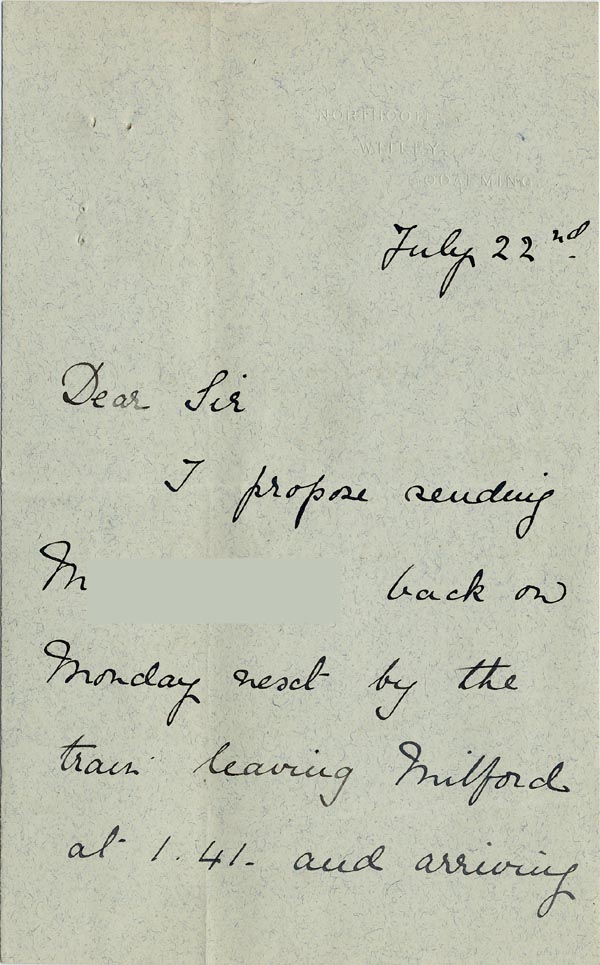 WITLEY,
GODALMING.
July 22nd.
Dear Sir
I propose sending
M back on
Monday next by the
train leaving Milford
at 1.41. and arriving